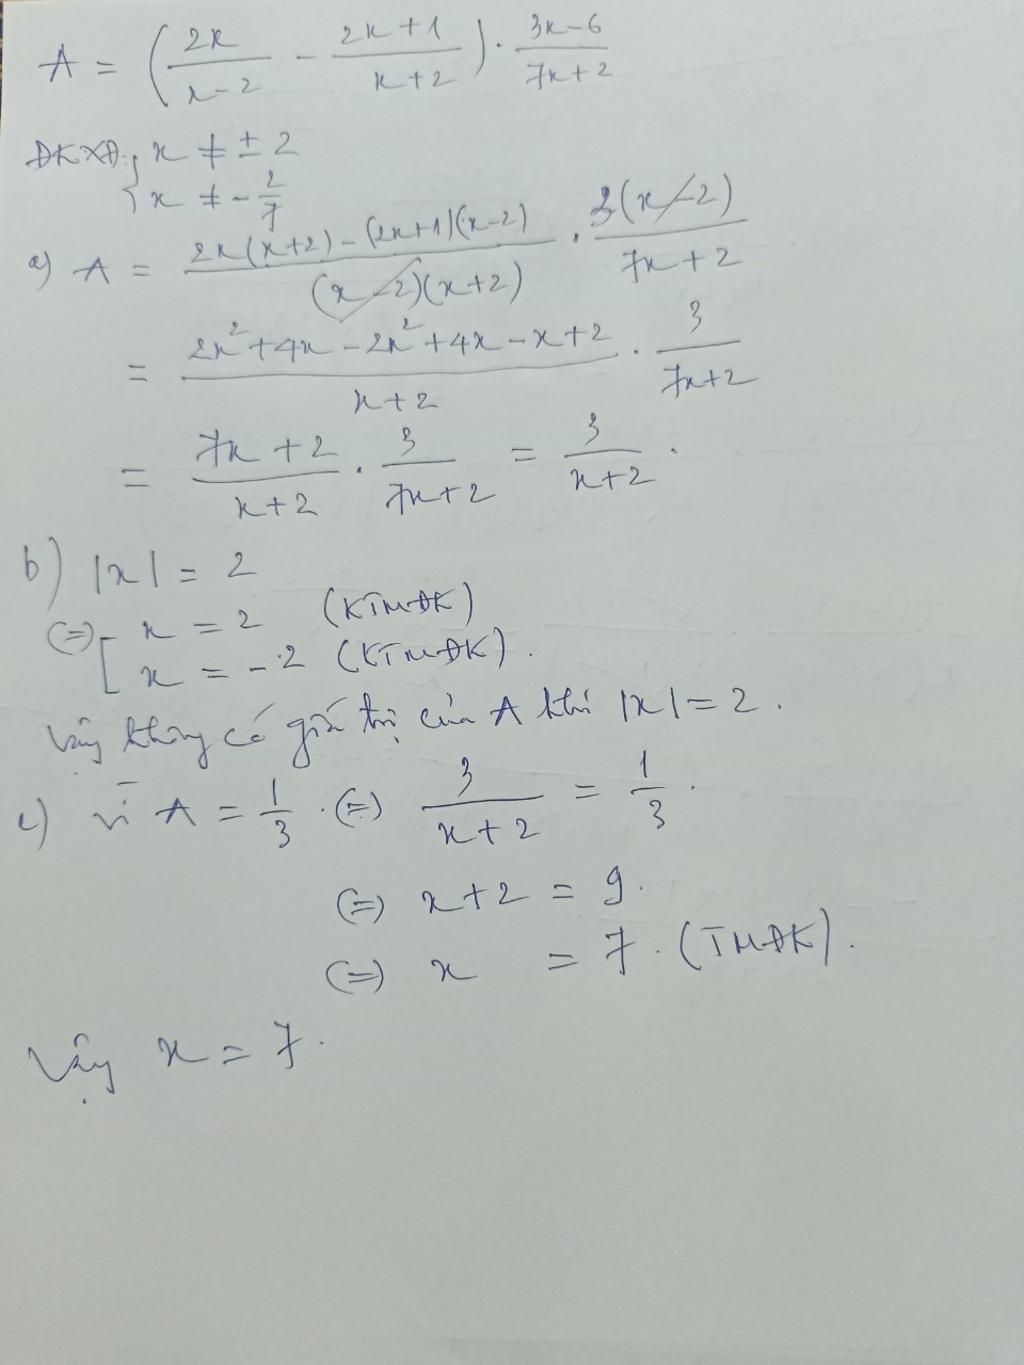 A = (2x/(x-2) - (2x+1)/(x+2)) · (3x-6)/(7x+2)
ĐKXĐ: { x ≠ ± 2
{ x ≠ - 2/7
a) A = (2x(x+2) - (2x+1)(x-2))/((x-2)(x+2)) · 3(x-2)/(7x+2)
= (2x² + 4x - 2x² + 4x - x + 2)/(x+2) · 3/(7x+2)
= (7x+2)/(x+2) · 3/(7x+2) = 3/(x+2) .
b) |x| = 2
(=) [ x = 2 (KTMĐK)
[ x = -2 (KTMĐK).
Vậy không có giá trị của A khi |x| = 2.
c) vì A = 1/3 . (=) 3/(x+2) = 1/3 .
(=) x+2 = 9.
(=) x = 7. (TMĐK).
Vậy x = 7.